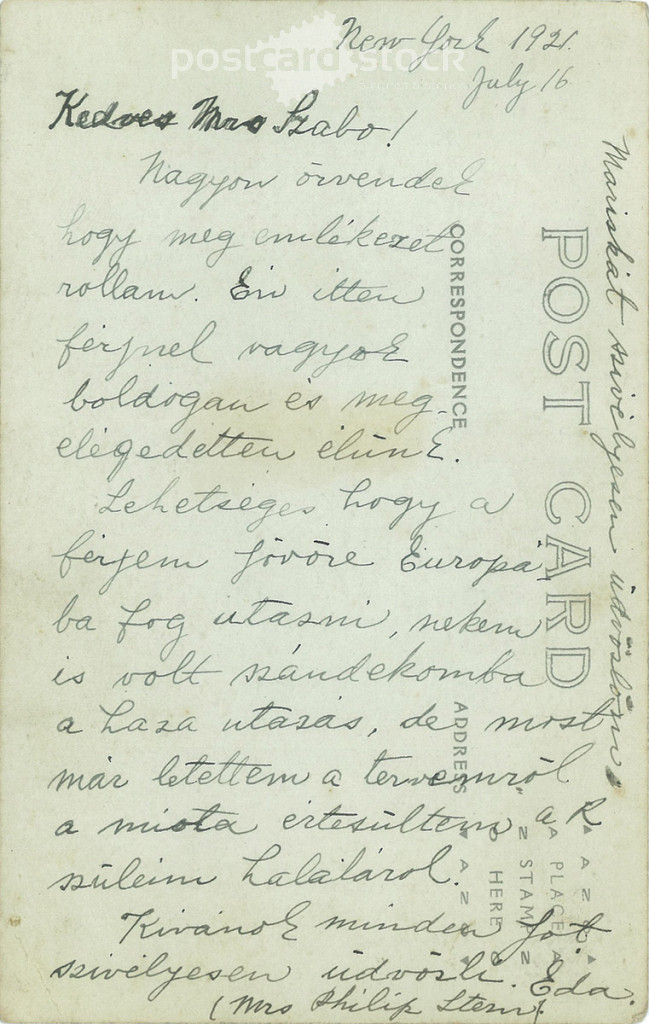 postcardstock
New York 1921.
July 16
Kedves Mrs Szabo!
Nagyon örvendek
hogy meg emlékezet
rollam. En itten
férjnél vagyok
boldogan és meg-
elégedetten élünk.
Lehetséges hogy a
férjem jövőre Európá-
ba fog utazni, nekem
is volt szándékomba
a haza utazás, de most
már letettem a tervemről
a miota értesültem a R
szüleim haláláról.
Kívánok minden jót
szivélyesen üdvözli Eda.
(Mrs Philip Stern).
Mariskát szivélyesen üdvözlöm
POST CARD
CORRESPONDENCE
ADDRESS
PLACE
STAMP
HERE
AZO